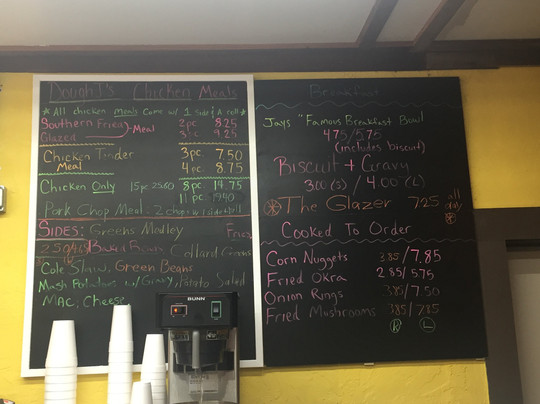 DoughJ's Chicken Meals
* All chicken meals come w/ 1 side & A roll *
Southern Fried Meal 2pc 8.25
Glazed 3pc 9.25
Chicken Tender 3pc. 7.50
Meal 4pc. 8.75
Chicken Only 15pc 25.60 8pc 14.75
11pc 19.40
Pork Chop Meal 2 chops w/ side + roll
Sides: Greens Medley Fries
Baked Beans Collard Greens
Cole Slaw, Green Beans
Mash Potatoes w/ Gravy, Potato Salad
Mac, Cheese
BUNN
Breakfast
Jays "Famous Breakfast Bowl
475/5.75
(includes biscuit)
Biscuit + Gravy
3.00 (s) / 4.00 (L)
The Glazer 7.25 all day
Cooked To Order
Corn Nuggets 3.85/7.85
Fried Okra 2.85/5.75
Onion Rings 3.85/7.50
Fried Mushrooms 3.85/7.85
R L